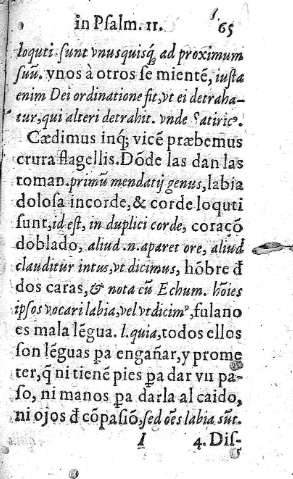 in Psalm. 11. 65
loquti sunt vnusquisq; ad proximum
suũ. vnos à otros se mientẽ, iusta
enim Dei ordinatione fit, vt ei detraha-
tur, qui alteri detrahit. vnde Satiricꝰ.
Cædimus inq; vicẽ præbemus
crura flagellis. Dõde las dan las
toman. primũ mendatij genus, labia
dolosa incorde, & corde loquti
sunt, id est, in duplici corde, coraçõ
doblado, aliud .n. aparet ore, aliud
clauditur intus, vt dicimus, hõbre đ
dos caras, & nota cũ Echum. hõies
ipsos vocari labia, vel vt dicimꝰ, fulano
es mala lẽgua. l. quia, todos ellos
son lẽguas ꝑa engañar, y prome
ter, q̃ ni tienẽ pies ꝑa dar vn pa-
so, ni manos ꝑa darla al caido,
ni ojos đ cõpasiõ, sed oẽs labia sũt.
I 4. Dis-